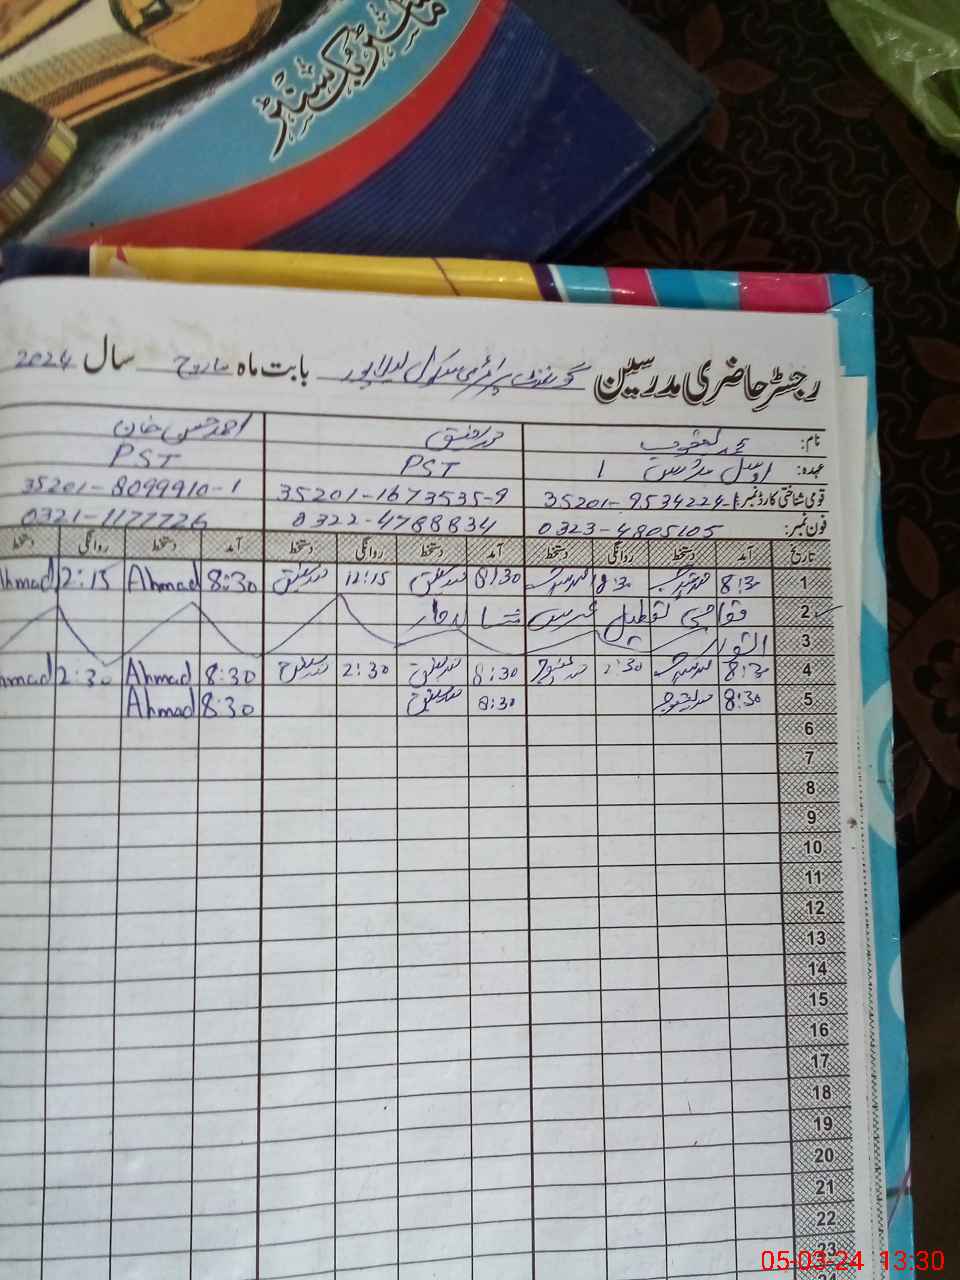 ماسٹر بک سنٹر
رجسٹر حاضری مدرسین گورنمنٹ پرائمری سکول بابت ماہ مارچ سال 2024
نام: محمد یعقوب محمد رفیق احمد حسن خان
عہدہ: اول مدرس PST PST
قومی شناختی کارڈ نمبر: 35201-9534224-1 35201-1673535-9 35201-8099910-1
فون نمبر: 0323-4805105 0322-4788834 0321-1177726
تاریخ آمد دستخط روانگی دستخط آمد دستخط روانگی دستخط آمد دستخط روانگی دستخط
1 8:30 8:30 12:15 8:30 Ahmad 12:15 Ahmad
2 مقامی تعطیل عرس
3 اتوار
4 8:30 2:30 8:30 2:30 8:30 Ahmad 2:30 Ahmad
5 8:30 8:30 8:30 Ahmad
6
7
8
9
10
11
12
13
14
15
16
17
18
19
20
21
22
23
05-03-24 13:30